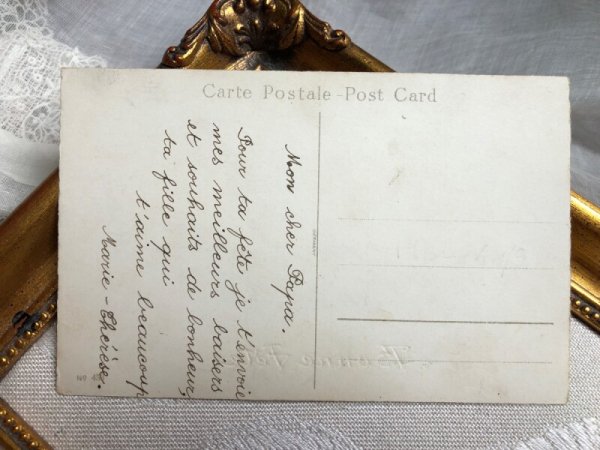 Carte Postale - Post Card
Mon cher Papa.
Pour ta fête je t'envoie
mes meilleurs baisers
et souhaits de bonheur,
ta fille qui
t'aime beaucoup
Marie-Thérèse.